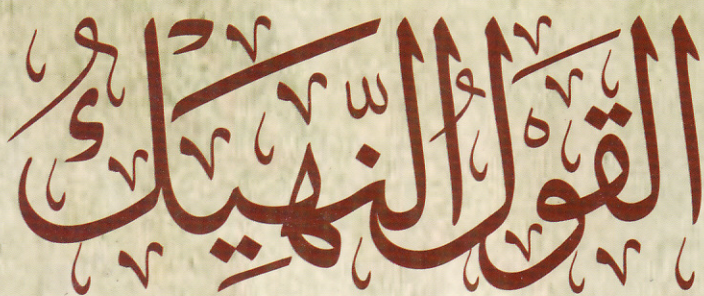 القَوْلُ النَّهِيكُ